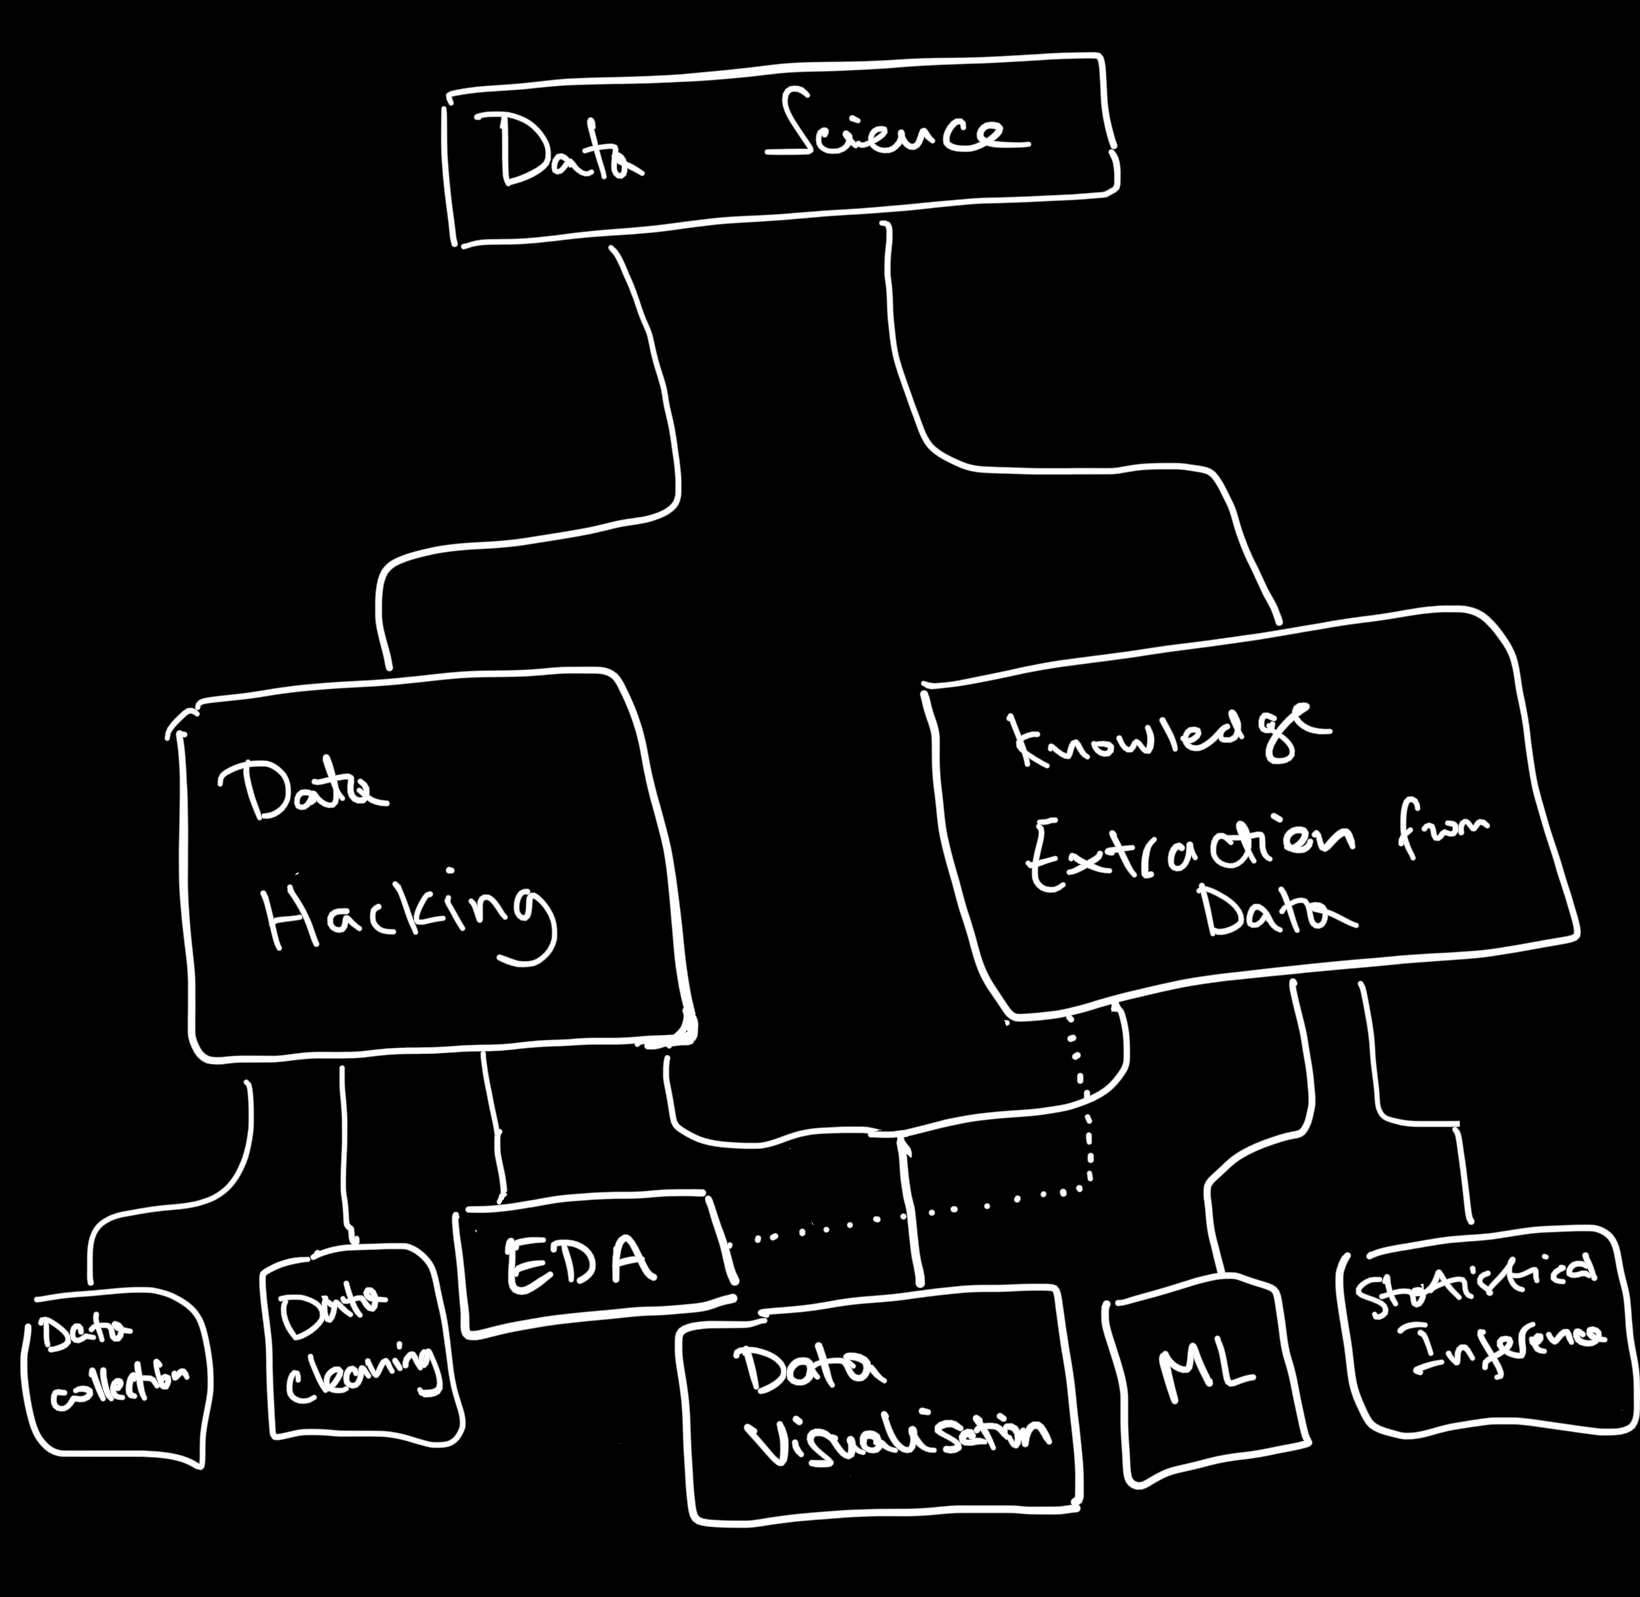 Data Science
Data
Hacking
Knowledge
Extraction from
Data
EDA
Data
collection
Data
cleaning
Data
Visualisation
ML
Statistical
Inference